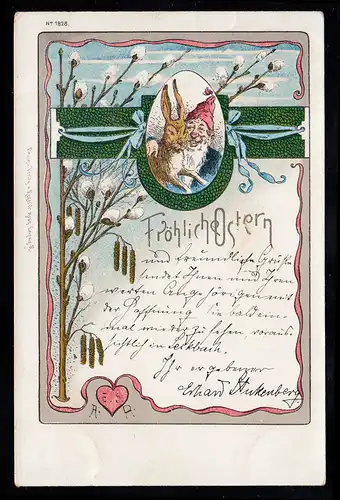 No 1828.
Fröhliche Ostern
und freundliche Grüße
sendet Ihnen und Ihren
werten Angehörigen mit
der Hoffnung Sie bald ein-
mal wieder zu sehen, voraus-
sichtlich in
Ihr ergebener
Erhard Stukenberg